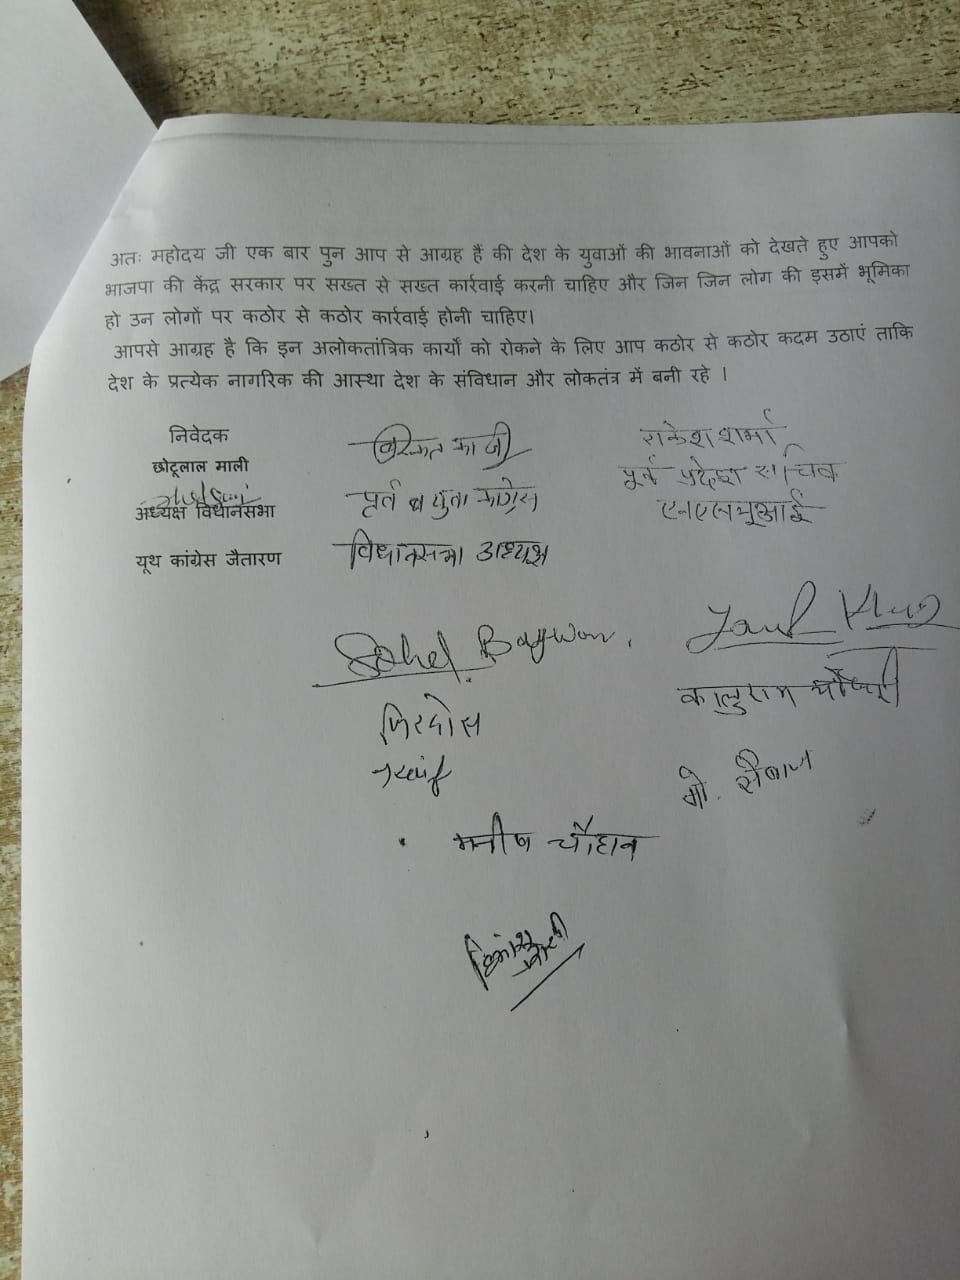 अतः महोदय जी एक बार पुन आप से आग्रह हैं की देश के युवाओं की भावनाओं को देखते हुए आपको
भाजपा की केंद्र सरकार पर सख्त से सख्त कार्रवाई करनी चाहिए और जिन जिन लोग की इसमें भूमिका
हो उन लोगों पर कठोर से कठोर कार्रवाई होनी चाहिए।
आपसे आग्रह है कि इन अलोकतांत्रिक कार्यों को रोकने के लिए आप कठोर से कठोर कदम उठाएं ताकि
देश के प्रत्येक नागरिक की आस्था देश के संविधान और लोकतंत्र में बनी रहे ।
निवेदक
छोटूलाल माली
अध्यक्ष विधानसभा
यूथ कांग्रेस जैतारण
काजी
युवा कांग्रेस
विधानसभा अध्यक्ष
राकेश शर्मा
पूर्व प्रदेश सचिव
एनएसयूआई
Sohel Bagwan.
Khan
फिरदोस
कालुराम चौधरी
मो.
मनीष चौहान